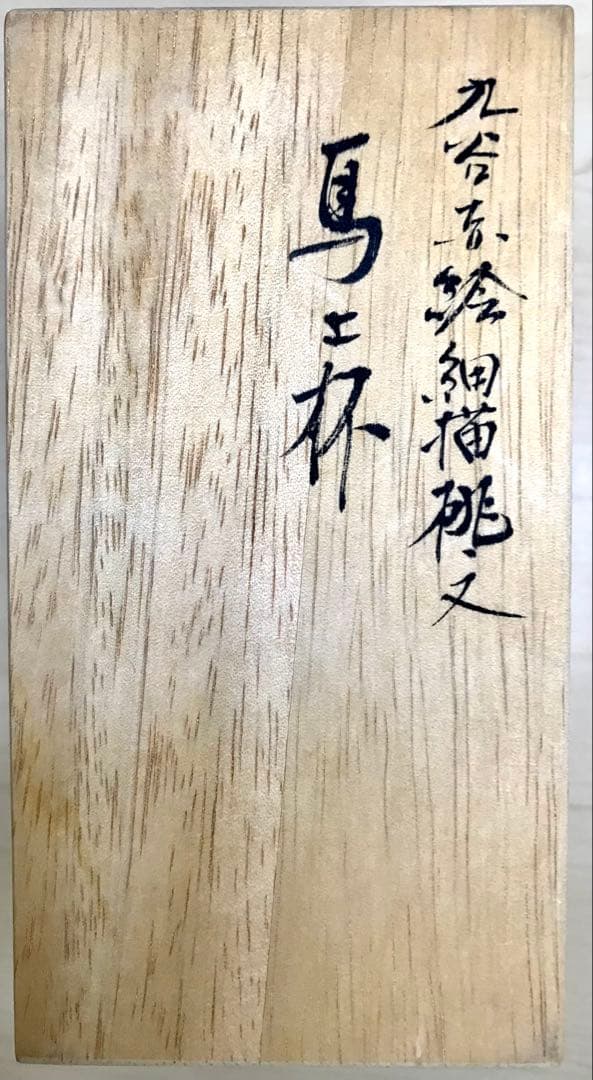 九谷赤絵細描桃文
馬上杯